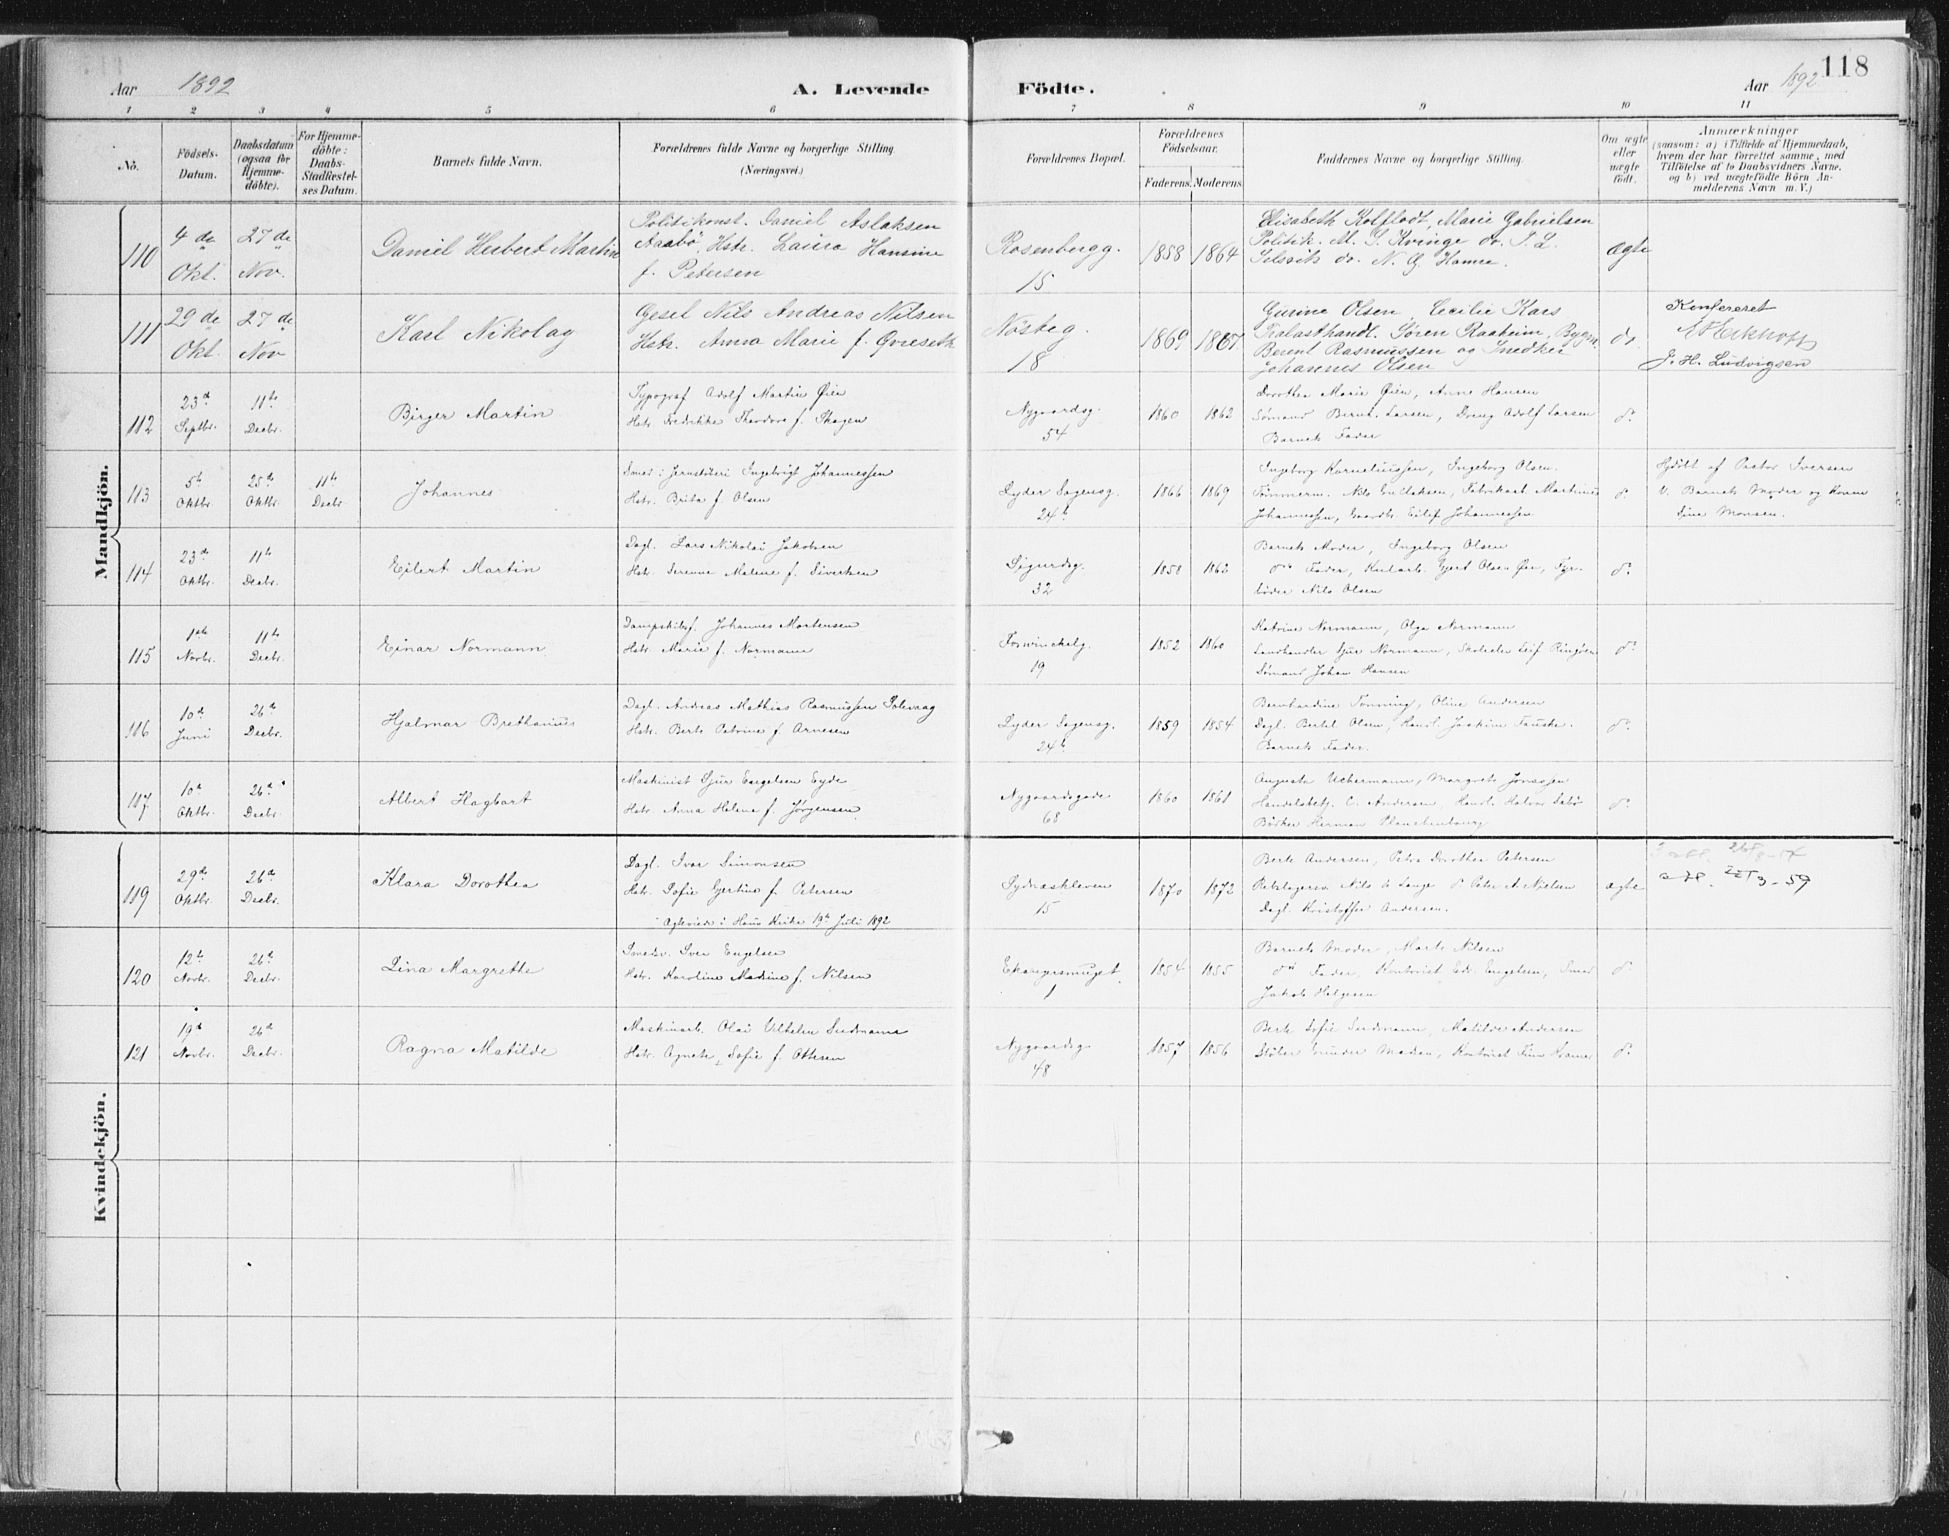 118
Aar 1892 A. Levende Födte. Aar 1892
1 2 3 4 5 6 7 8 9 10 11
No. Födsels-Datum. Daabsdatum (ogsaa for Hjemme-döbte). For Hjemme-döbte: Daabs-Stadfæstel-ses Datum. Barnets fulde Navn. Forældrenes fulde Navne og borgerlige Stilling (Næringsvei.) Forældrenes Bopæl. Forældrenes Födselsaar. Faderens. Moderens. Faddernes Navne og borgerlige Stilling. Om ægte eller uægte födt. Anmærkninger (saasom: a) i Tilfælde af Hjemmedaab, hvem der har forrettet samme, med Tilföielse af to Daabsvidners Navne, og b) ved uægtefödte Börn An-melderens Navn m. V.)
Mandkjön.
110 4de Okt. 27de Nov. Daniel Herbert Martin
Politikonst. Daniel Aslaksen
Aasbö, Hstr. Laura Hansine
f. Petersen
Rosenbergg. 15 1858 1864
Elisabeth Kolflodt, Marie Gabrielsen
Politik. M. S. Kvinge do. S. L.
do. N. G. Hamre. ægte
111 29de Okt. 27de Nov Karl Nikolay
Gesel Nils Andreas Nilsen
Hstr. Anna Marie f. Qvieseth
Nösteg. 18 1869 1867
Gurine Olsen, Cecilie Kars
Trelasthandl. Sören Raaheim, Bygm.
Berent Rasmussen og Snedker
Johannes Olsen do
Konfereret
J. H. Ludvigsen
112 23d Septbr. 11te Decbr. Birger Martin
Typograf Adolf Martin Øien
Hstr. Fredrikke Theodore f. Skagen
Nygaardsg. 54 1860 1862
Dorothea Marie Øien, Anne Hansen
Sømand Bernt Larsen, Dreng Adolf Larsen
Barnets Fader do
113 5te Oktbr. 25de Oktbr. 11te Decbr. Johannes
Smed i Jernstöberi Ingebrigt Johannessen
Hstr. Brita f. Olsen
Lyder Sagensg. 24b 1866 1869
Ingeborg Korneliussen, Ingeborg Olsen.
Tømmerm. Nils Gullaksen, Fabrikarb. Martinus
Johannessen, Gaardbr. Eilif Johannessen do
Hjdöbt af Pastor Iversen
V. Barnets Moder og Kone
Sine Monsen.
114 23de Oktbr. 11te Decbr. Eilert Martin
Dagl. Lars Nikolai Jakobsen
Hstr. Serenne Malene f. Sivertsen
Sigurdsg. 32 1858 1862
Barnets Moder, Ingeborg Olsen
do Fader, Kularb. Gjert Olsen Øen, Fyr-
böder Nils Olsen do
115 1ste Novbr. 11te Decbr. Einar Normann
Dampskibsf. Johannes Mortensen
Hstr. Marie f. Normann
Fosswinckelg. 19 1852 1860
Katrine Normann, Olga Normann
Landhandler Sjur Normann, Skoleelev Leif Ringöen
Sömand Johan Hansen do
116 10de Juni 26de Decbr. Hjalmar Brethanius
Dagl. Andreas Mathias Rasmussen Solevaag
Hstr. Berte Petrine f. Arnesen
Lyder Sagensg. 24b 1859 1854
Bernhardine Tønning, Oline Andersen
Dagl. Bertel Olsen, Handl. Joakim Fauske.
Barnets Fader. do
117 10de Oktbr. 26de Decbr. Albert Hagbart
Maskinist Sjur Engelsen Eyde
Hstr. Anna Helene f. Jørgensen
Nygaardsgade 68 1860 1861
Augusta Uchermann, Margrete Jonssen
Handelsbetj. C. Andersen, Handl. Halvor
Bödker Herman do
Kvindekjön.
119 29de Oktbr. 26de Decbr. Klara Dorothea
Dagl. Ivar Simonsen
Hstr. Sofie Gjertine f. Petersen
Ægteviede i Haus Kirke 19de Juli 1892
Sydnæskleven 15 1870 1872
Berte Andersen, Petra Dorothea Petersen
Rebslagersv. Nils B Lange do Peter A. Nielsen
Dagl. Kristoffer Andersen. ægte
3-59
120 12te Novbr. 26de Decbr. Lina Margrethe
Smedsv. Sven Engelsen
Hstr. Karoline Madsine f. Nilsen
Ekregrsmuget 1 1854 1855
Barnets Moder, Marte Nilsen
do Fader, Kontorist Edv. Engelsen, Smed
Jakob Helgesen do
121 19de Novbr. 26de Decbr. Ragna Matilde
Maskinarb. Olai Vilhelm Sundmann
Hstr. Agnete Sofie f. Ottesen
Nygaardsg. 48 1857 1856
Berte Sofie Sundmann, Matilde Andersen
Stöber Gunder Madsen, Kontorist Finn do